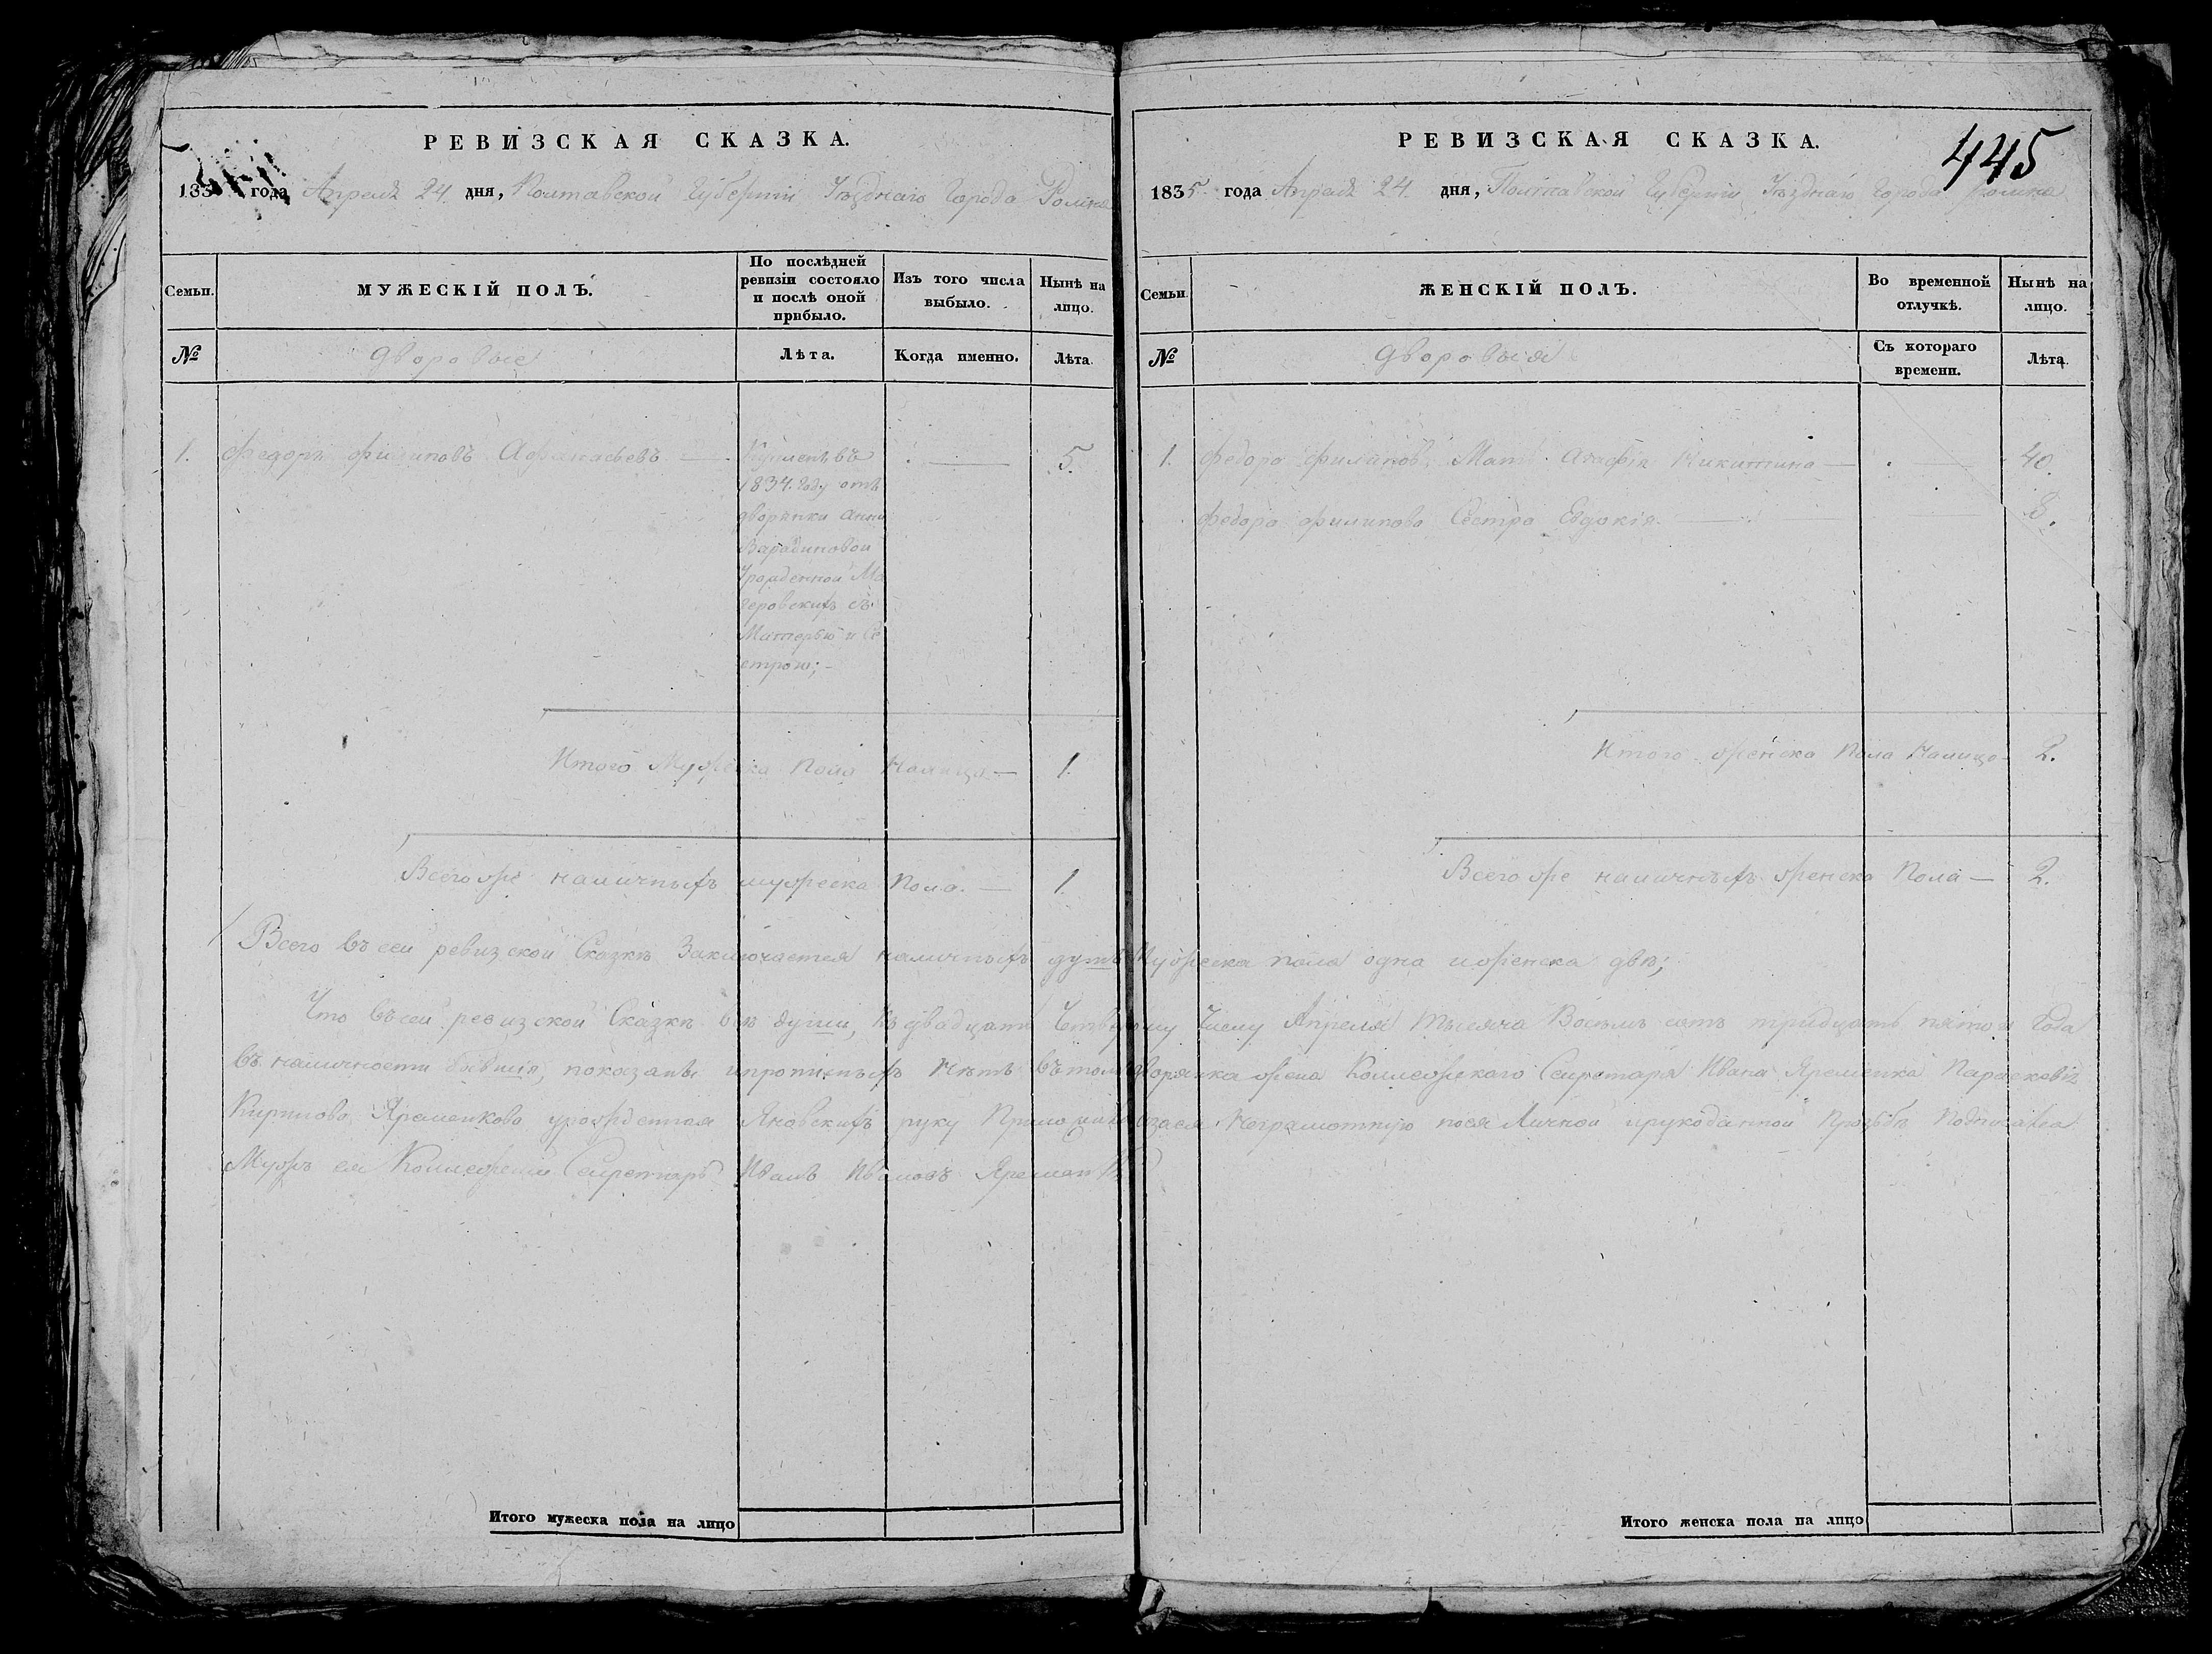 РЕВИЗСКАЯ СКАЗКА.
183 года Апреля 24 дня, Полтавской Губернии Уѣзднаго города Ромна
Семьи.
МУЖЕСКІЙ ПОЛЪ.
По послѣдней ревизіи состояло и послѣ оной прибыло.
Изъ того числа выбыло.
Нынѣ на лицо.
№
дворовые
Лѣта.
Когда именно.
Лѣта.
1. Федоръ Филиповъ Афанасьевъ — 5.
Купленъ въ
1834. году отъ
дворянки Анны
Варадиновой
Урожденной
съ
Матерью и Се
строю; —
Итого Мужеска Пола Налицо — 1.
Всего же наличныхъ мужеска Пола. — 1.
Итого мужеска пола на лицо
РЕВИЗСКАЯ СКАЗКА.
445
1835 года Апреля 24 дня, Полтавской Губерніи Уѣзднаго города Ромна
Семьи.
ЖЕНСКІЙ ПОЛЪ.
Во временной отлучкѣ.
Нынѣ на лицо.
№
дворовыя
Съ котораго времени.
Лѣта.
1. Федора Филипова Мать Агафія Никитина — 40.
Федора Филипова Сестра Евдокія — 8.
Итого женска Пола Налицо — 2.
Всего же наличныхъ женска Пола — 2.
Всего въ сей ревизской Сказкѣ Заключается наличныхъ душъ Мужеска пола одна и женска двѣ;
Что въ сей ревизской Сказкѣ всѣ души, къ двадцать Четвертому Числу Апреля Тысяча Восемъ сотъ тридцать пятого Года
въ наличности бывшія, показаны и прописныхъ нѣтъ въ томъ дворянка жена Коллежского Секретаря Ивана Яременка Параскевія
Кирилова Яременкова урожденная Яновскихъ руку Приложила а заея неграмотную поея Личной ирукоданной Прозьбѣ Подписался
Мужъ ея Коллежскій Секретарь Иванъ Ивановъ Яременко
Итого женска пола на лицо